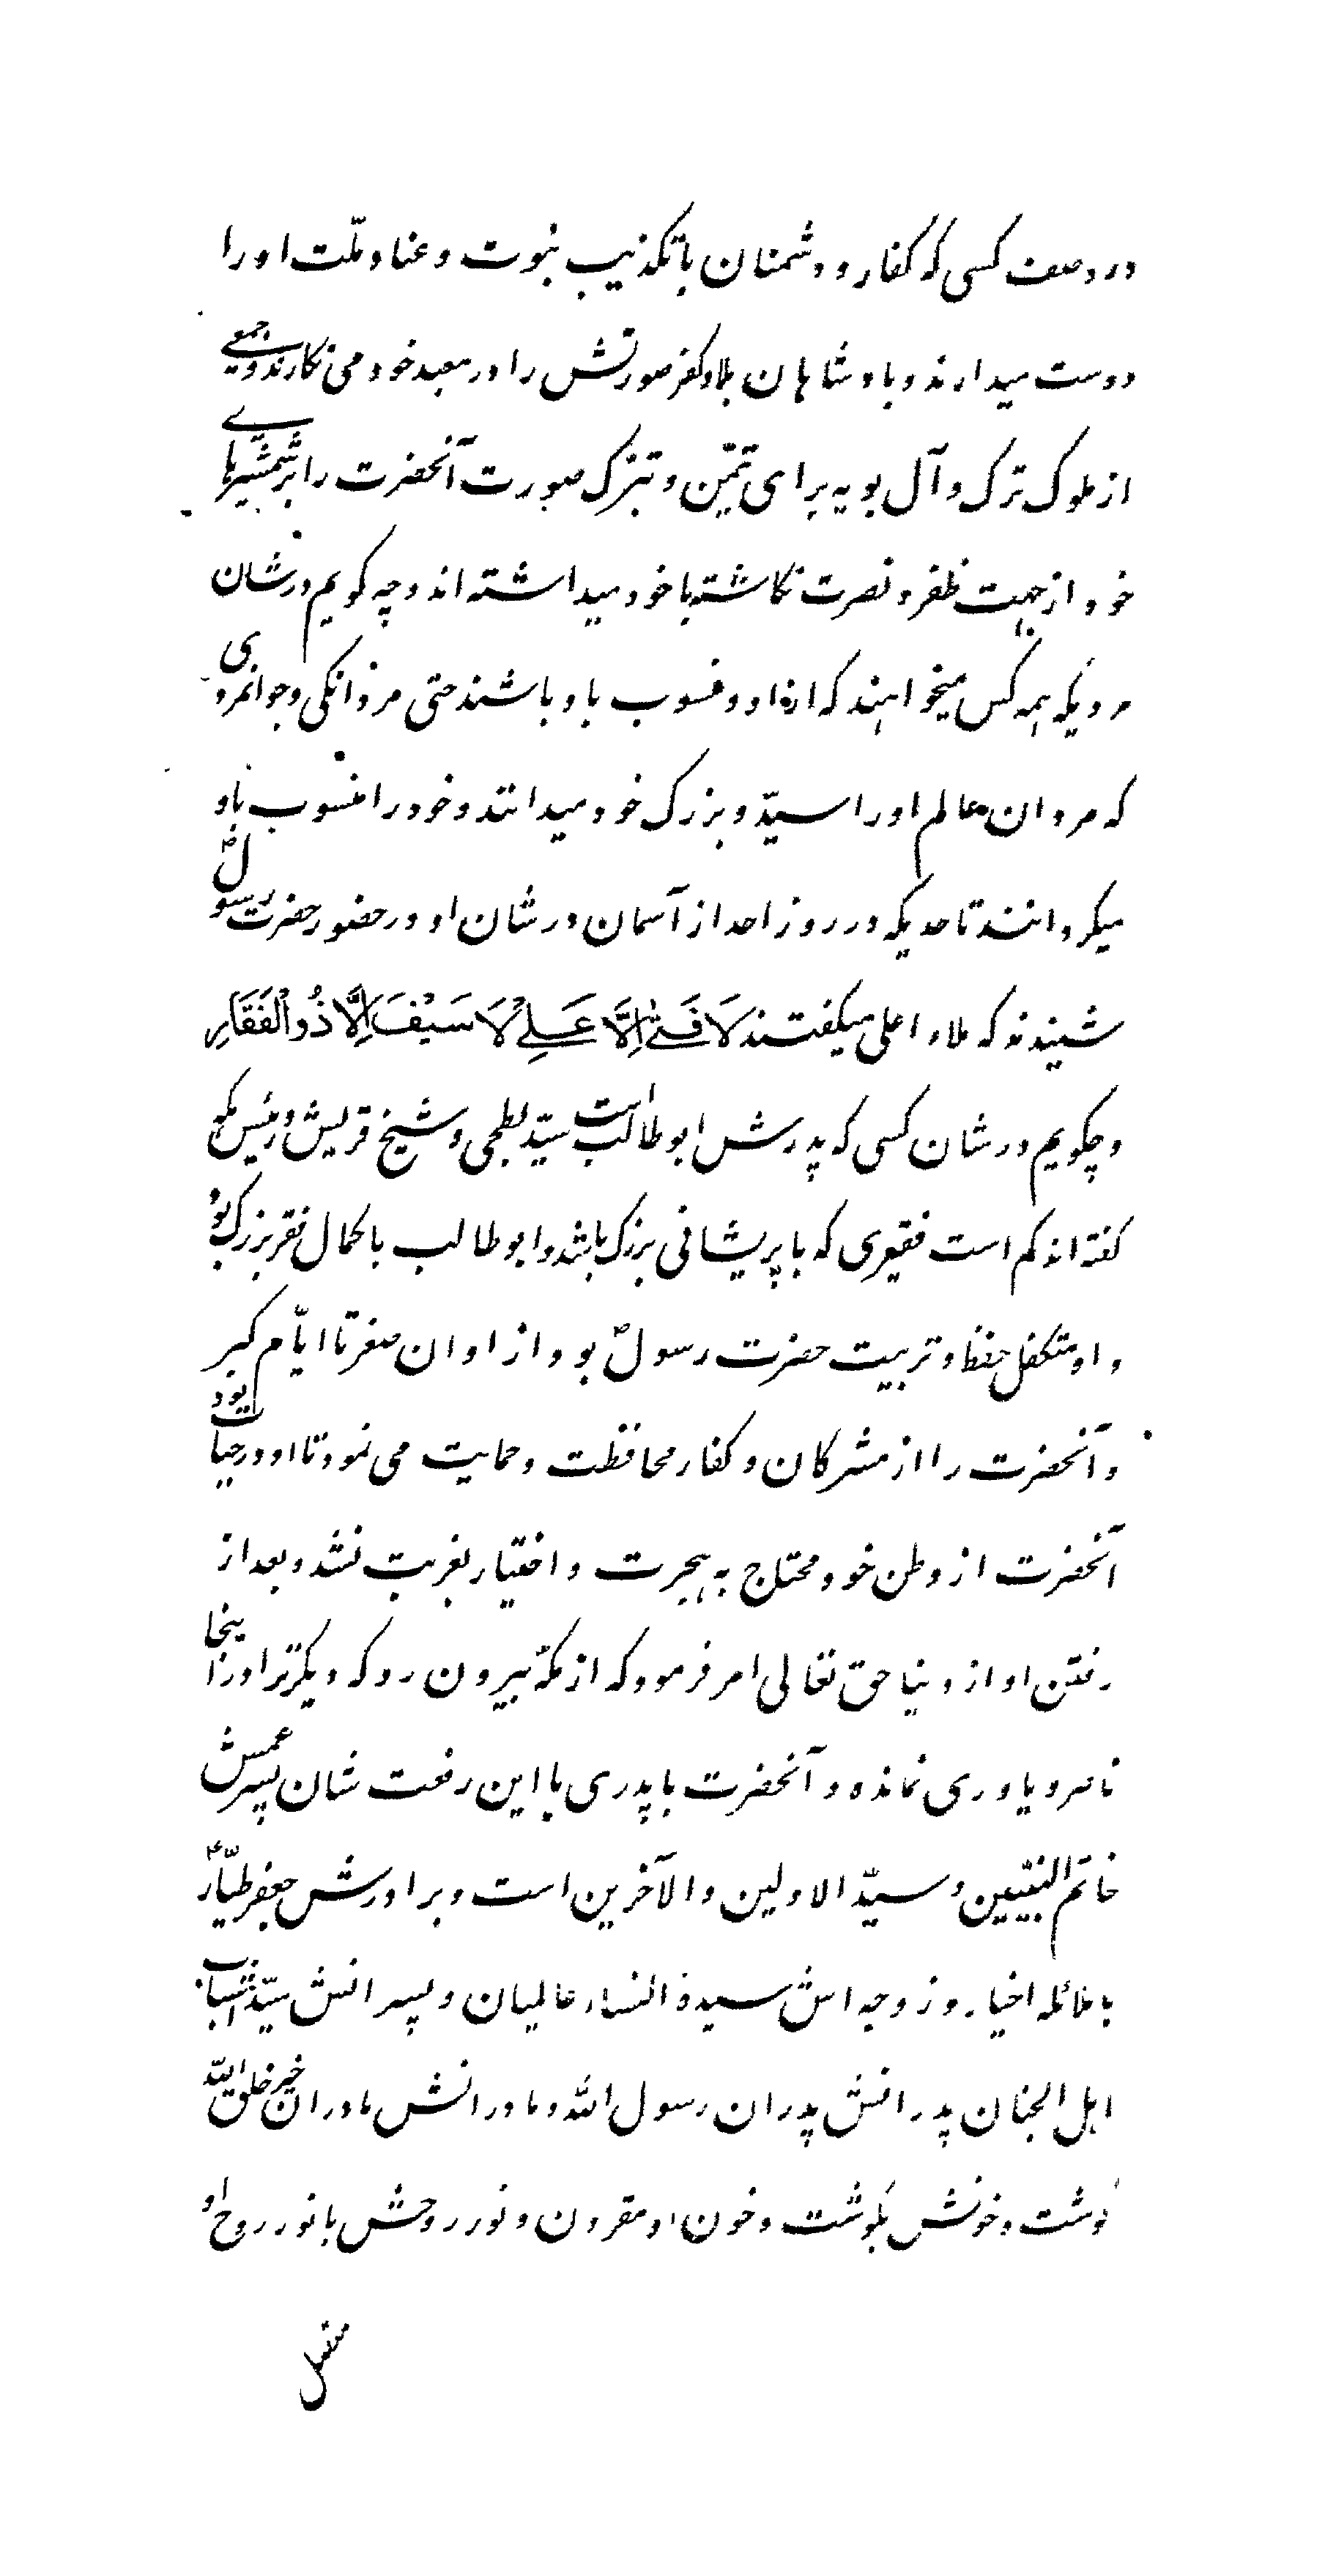 در وصف کسی که کفار و دشمنان با تکذیب نبوت و عناد ملّت او را
دوست میدارند و پادشاهان بلاد کفر صورتش را در معبد خود می نکارند و جمعے
از ملوک ترک و آل بویه برای تیمّن و تبرّک صورت آنحضرت را بر شمشیرهاے
خود از جهت ظفر و نصرت نکاشته با خود میداشته اند و چه کویم در شان
مردیکه همه کس میخواهند که از او و منسوب باو باشند حتی مردانکی و جوانمردی
که مردان عالم او را سیّد و بزرک خود میدانند و خود را منسوب باو
میکردانند تا حدیکه در روز احد از آسمان در شان او در حضور حضرت رسولؐ
شنیدند که ملاء اعلی میکفتند لَا فَتٰی اِلَّا عَلِیْ لَا سَیْفَ اِلَّا ذُوالْفَقَارِ
و چکویم در شان کسی که پدرش ابوطالب است سیّد بطحی و شیخ قریش و رئیس مکّه
کفته اند کم است فقیری که با پریشانی بزرک باشد و ابوطالب با کمال فقر بزرک بود
و او متکفل حفظ و تربیت حضرت رسولؐ بود از اوان صغر تا ایّام کبر
و آنحضرت را از مشرکان و کفار محافظت و حمایت می نمود تا او در حیات بود
آنحضرت از وطن خود محتاج به هجرت و اختیار بغربت نشد و بعد از
رفتن او از دنیا حق تعالی امر فرمود که از مکّه بیرون رو که دیکر ترا در اینجا
ناصر و یاوری نمانده و آنحضرت با پدری با این رفعت شان پسر عمش
خاتم النبیّین و سیّد الاولین و الآخرین است و برادرش جعفر طیّارؑ
با ملائکه اخیار و زوجه اش سیدة النساء عالمیان و پسرانش سیّد شباب
اهل الجنان پدرانش پدران رسول اللّه و مادرانش مادران خیر خلق اللّه
کوشت و خونش بکوشت و خون او مقرون و نور روحش با نور روح او
متصل